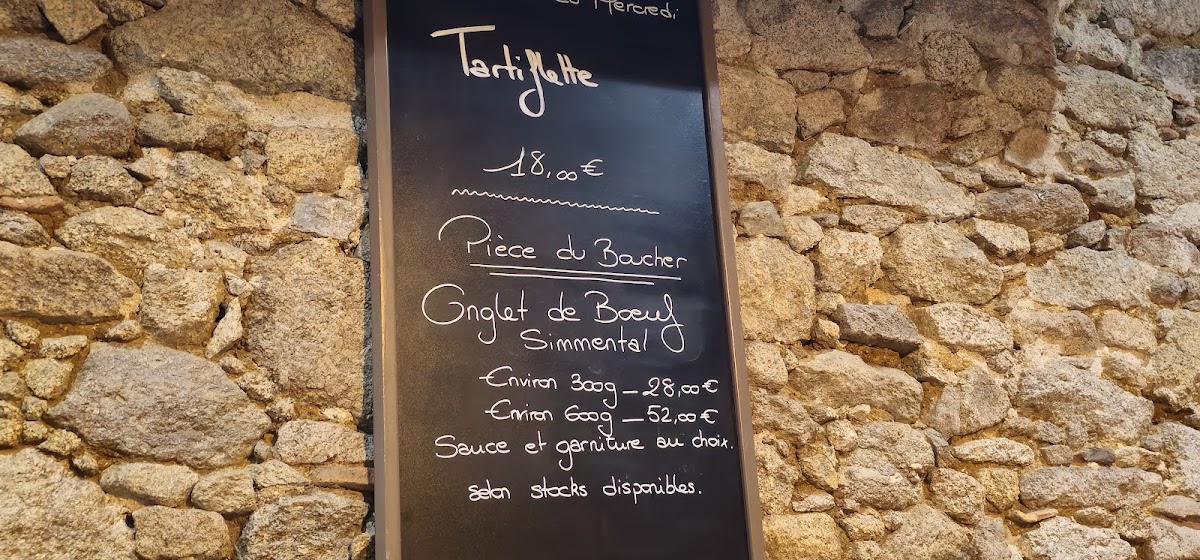 Mercredi
Tartiflette
18,00€
Pièce du Boucher
Onglet de Bœuf
Simmental
Environ 300g _ 28,00€
Environ 600g _ 52,00€
Sauce et garniture au choix.
selon stocks disponibles.